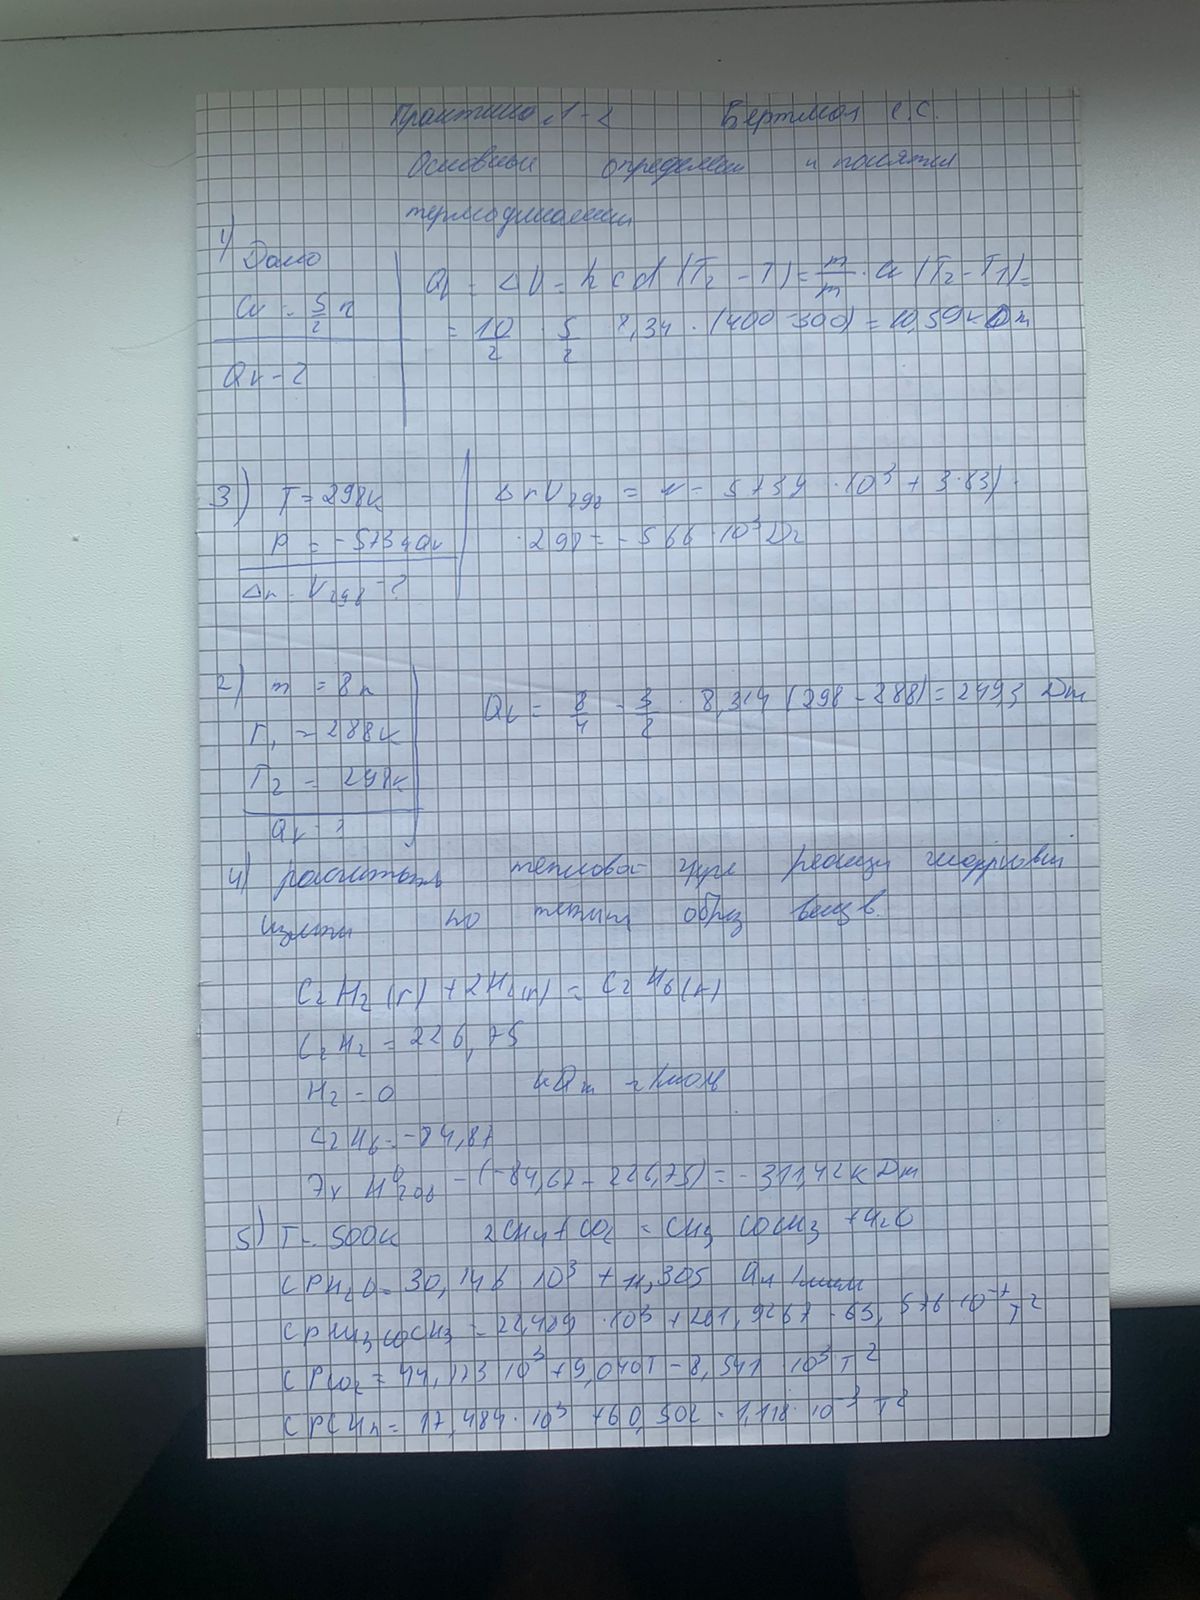 Практика 1-2 Бертмол С.С.
Основные определен и понятия
термодинамики
1) Дано
Cv = 5/2 R
Qv - ?
Qv = ΔU = n c d (T2 - T) = m/m · Cv (T2 - T1) =
= 10/2 · 5/2 8,34 · (400-300) = 10,39 кДж
3) T = 298к
P = -5734 Дж
Δr - V298 - ?
ΔrU298 = - 5739 · 10^3 + 3·83)
·298 = -566 · 10^3 Дж
2) m = 8г
T1 = 288к
T2 = 298к
Qv - ?
Qv = 8/4 - 3/2 · 8,314 (298 - 288) = 249,3 Дж
4) расчитать тепловой реакции
по образ веществ.
C2H2(г) + 2H2(г) = C2H6(г)
C2H2 = 226,75
H2 - 0 кДж /моль
C2H6 = -84,67
H°298 - (-84,67 - 226,75) = -311,42 кДж
5) T = 500к 2CH4 + CO2 = CH3 COCH3 + H2O
CPH2O = 30,146 10^3 + 11,305
CPCH3COCH3 = 22,489 · 10^3 + 201,926T - 63,576 10^-3 T^2
CPCO2 = 44,173 10^3 + 9,040T - 8,541 10^3 T^2
CPCH4 = 17,484 · 10^3 + 60,502 - 1,118 · 10^-3 T^2